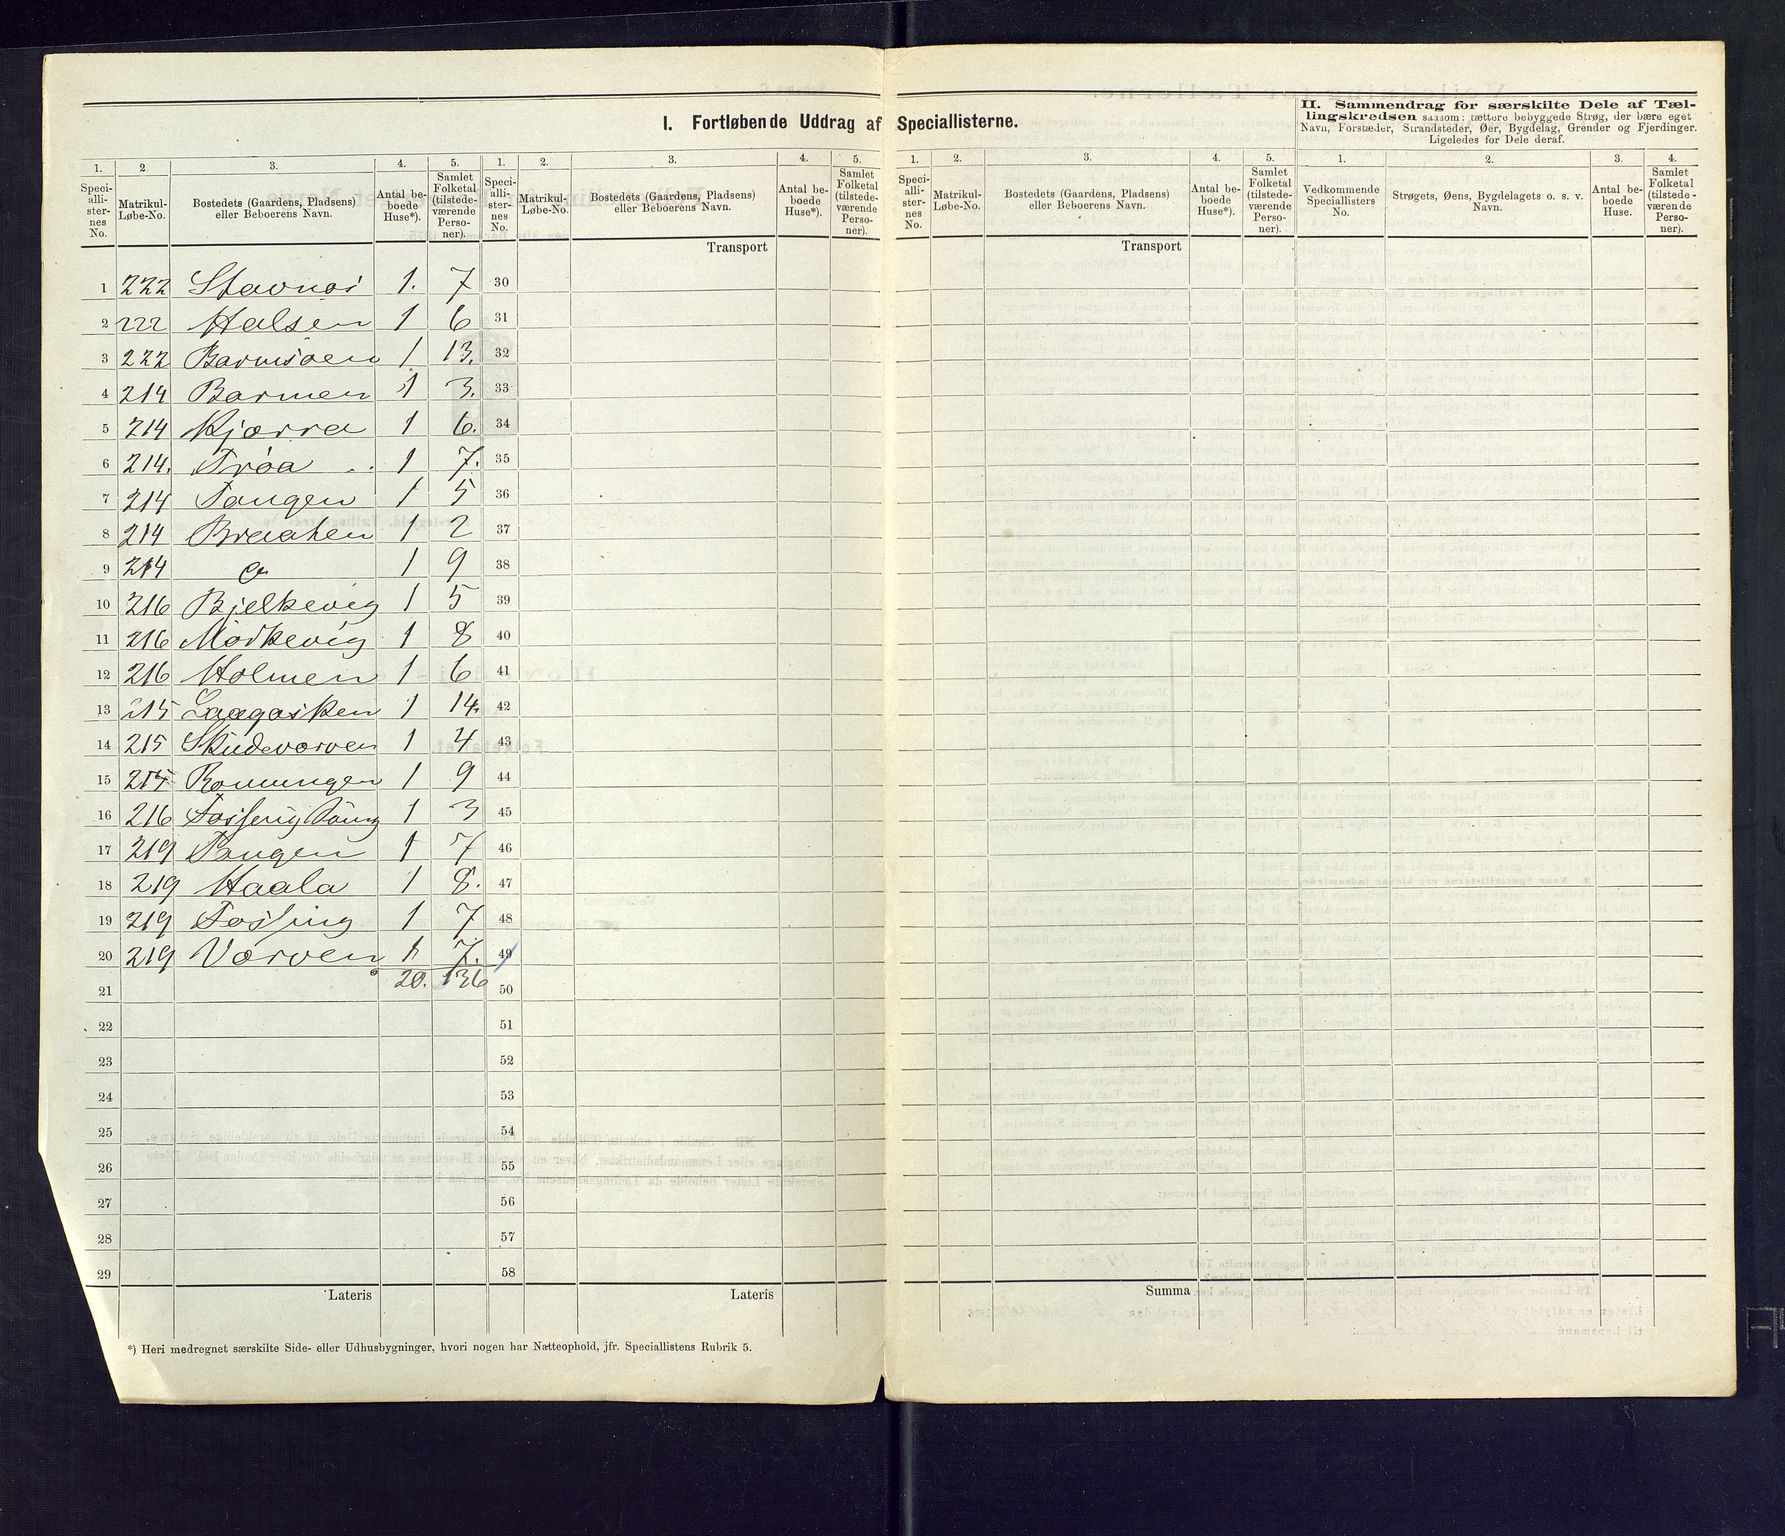 I. Fortløbende Uddrag af Speciallisterne.
II. Sammendrag for særskilte Dele af Tæl-
lingskredsen saasom: tættere bebyggede Strøg, der bære eget
Navn, Forstæder, Strandsteder, Øer, Bygdelag, Grender og Fjerdinger.
Ligeledes for Dele deraf.
1. 2 3. 4. 5. 1. 2. 3. 4. 5. 1. 2. 3. 4. 5. 1. 2. 3. 4.
Speci-
alli-
ster-
nes
No.
Matrikul-
Løbe-No.
Bostedets (Gaardens, Pladsens)
eller Beboerens Navn.
Antal be-
boede
Huse*).
Samlet
Folketal
(tilstede-
værende
Perso-
ner).
Speci-
alli-
ster-
nes
No.
Matrikul-
Løbe-No.
Bostedets (Gaardens, Pladsens)
eller Beboerens Navn.
Antal be-
boede
Huse*).
Samlet
Folketal
(tilstede-
værende
Perso-
ner).
Speci-
alli-
ster-
nes
No.
Matrikul-
Løbe-No.
Bostedets (Gaardens, Pladsens)
eller Beboerens Navn.
Antal be-
boede
Huse*).
Samlet
Folketal
(tilstede-
værende
Perso-
ner).
Vedkommende
Speciallisters
No.
Strøgets, Øens, Bygdelagets o. s. v.
Navn.
Antal be-
boede
Huse.
Samlet
Folketal
(tilstede-
værende
Perso-
ner).
Transport Transport
1 222 Stavnæs 1. 7 30
2 222 Halsen 1 6 31
3 222 Barmsøen 1 13. 32
4 214 Barmen 1 3. 33
5 214 Kjærra 1 6. 34
6 214. Trøa 1 7. 35
7 214 Tangen 1 5 36
8 214 Braaten 1 2 37
9 214 1 9 38
10 216 Bjelkevig 1 5 39
11 216 Mørkevig 1 8 40
12 216 Holmen 1 6 41
13 215 Laagøsken 1 14. 42
14 215 Skudeværven 1 4 43
15 214 Rønningen 1 9 44
16 216 1 3 45
17 219 Tangen 1 7 46
18 219 Haala 1 8. 47
19 219 Tossing 1 7 48
20 219 Værven 1 7. 49
21 20. 136 50
22 51
23 52
24 53
25 54
26 55
27 56
28 57
29 58
Lateris Lateris Summa
*) Heri medregnet særskilte Side- eller Udhusbygninger, hvori nogen har Natteophold, jfr. Speciallistens Rubrik 5.